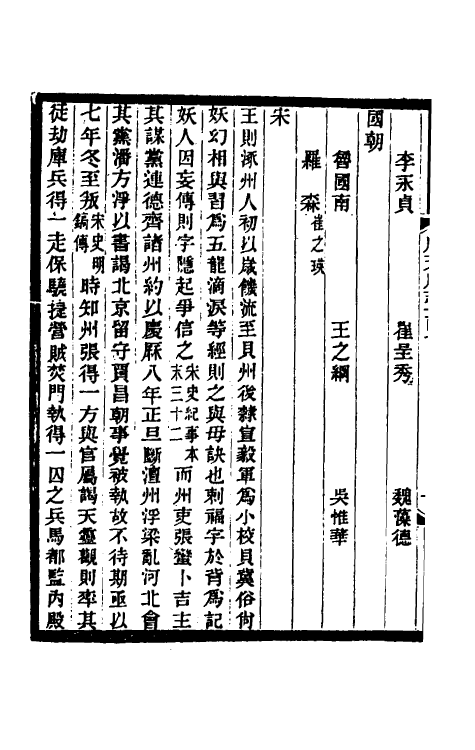 李永貞　崔呈秀　魏藻德
國朝
魯國南　王之綱　吳惟華
羅森　崔之瑛
宋
王則涿州人初以歲饑流至貝州後隸宣毅軍爲小校貝冀俗尙
妖幻相與習爲五龍滴淚等經則之與母訣也刺福字於背爲記
妖人因妄傳則字隱起爭信之宋史紀事本末三十二而州吏張蠻卜吉主
其謀黨連德齊諸州約以慶厤八年正旦斷澶州浮梁亂河北會
其黨潘方淨以書謁北京留守賈昌朝事覺被執故不待期亟以
七年冬至叛宋史明鎬傳時知州張得一方與官屬謁天靈觀則率其
徒劫庫兵得一走保驍捷營賊焚門執得一囚之兵馬都監內殿